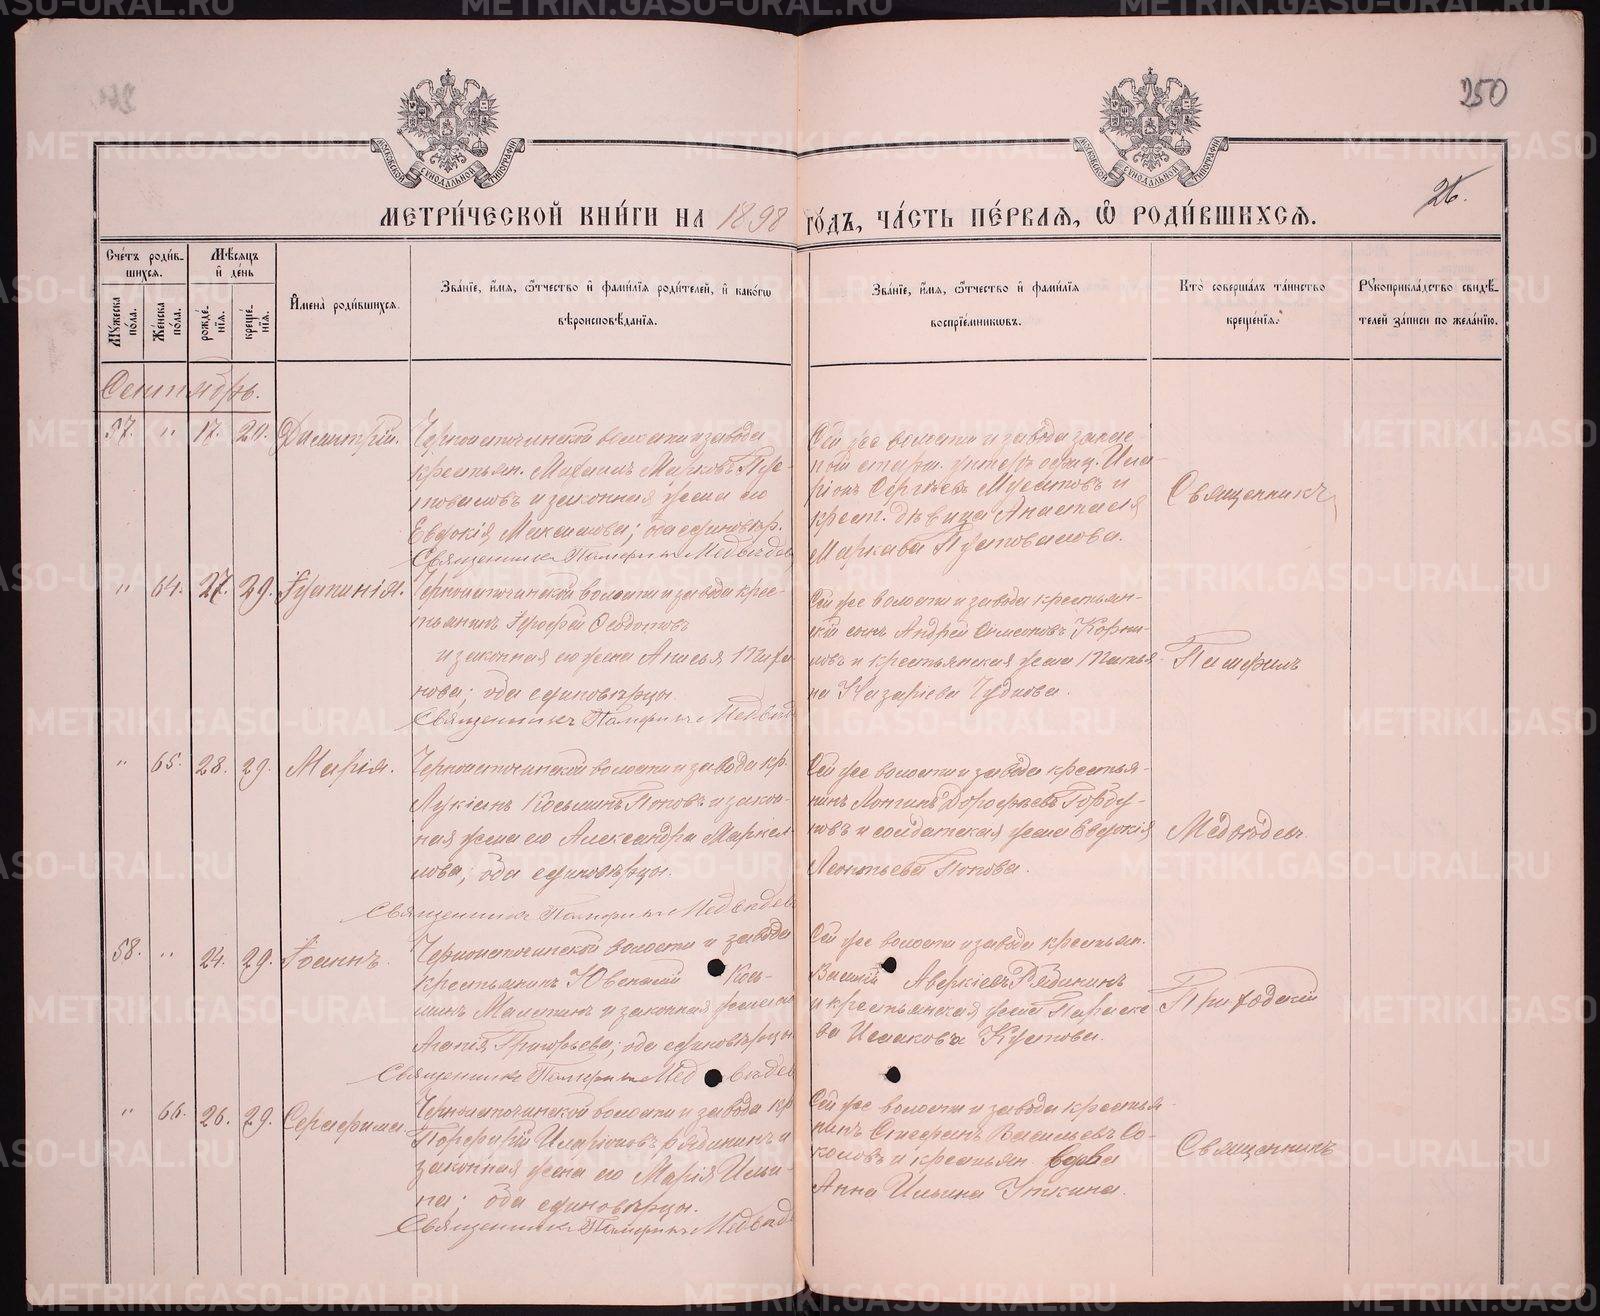 250
26.
МЕТРИ́ЧЕСКОЙ КНИ́ГИ НА 1898 ГО́ДЪ, ЧА́СТЬ ПЕ́РВАЯ, Ѿ РОДИ́ВШИХСЯ.
Счётъ роди́в-
шихся.
Мѣсяцъ
и҆ де́нь
И҆мена̀ роди́вшихся.
Зва́нїе, и҆́мя, ѻ҆́тчество и҆ фами́лїя роди́телей, и҆ како́гѡ
вѣроисповѣ́данїя.
Зва́нїе, и҆́мя, ѻ҆́тчество и҆ фами́лїя
воспрїе́мникѡвъ.
Кто̀ соверша́лъ та́инство
креще́нїя.
Рꙋкоприкла́дство свидѣ́-
телей за́писи по жела́нїю.
Мꙋ́жеска
по́ла.
Же́нска
по́ла.
рожде́-
нїя.
креще́-
нїя.
Сентябрь.
57. " 17. 20. Димитрій.
Черноисточинской волости и завода
крестьян. Михаилъ Марковъ Пус-
товаловъ и законная жена его
Евдокія Максимова; оба единовѣр.
Священникъ Памфилъ Медвѣдев
Сей же волости и завода запас-
ной старш. унтеръ офиц. Ила-
ріонъ Сергѣевъ Мусатовъ и
крест. дѣвица Анастасія
Маркова Пустовалова.
Священникъ
" 64. 27. 29. Іустинія.
Черноисточинской волости и завода крес-
тьянинъ Ерофей Ѳедотовъ
и законная его жена Анисья Тита-
нова; оба единовѣрцы.
Священникъ Памфилъ Медвѣд
Сей же волости и завода крестьян-
скій сынъ Андрей Симеоновъ Корни-
ловъ и крестьянская жена Татья-
на Назаріева Чуднова.
Памфилъ
" 65. 28. 29. Марія.
Черноисточинской волости и завода кр.
Лукіанъ Косьминъ Поповъ и закон-
ная жена его Александра Маркел-
лова; оба единовѣрцы.
Священникъ Памфилъ Медвѣдев
Сей же волости и завода крестья-
нинъ Логинъ Дороѳеевъ Горбу-
новъ и солдатская жена Евдокія
Леонтьева Попова.
Медвѣдевъ
58. " 24. 29. Іоаннъ.
Черноисточинской волости и завода
крестьянинъ Ювеналій Кось-
минъ Малыгинъ и законная жена его
Агапія Григорьева; оба единовѣрцы
Священникъ Памфилъ Медвѣдев
Сей же волости и завода крестьян.
Василій Аверкіевъ Рябининъ
и крестьянская жена Параске-
ва Исаакова Кустова.
Приходскій
" 66. 26. 29. Серафима.
Черноисточинской волости и завода кр
Порфирій Иларіоновъ Рябининъ и
законная жена его Марія Ильи-
на; оба единовѣрцы.
Священникъ Памфилъ Медвѣд
Сей же волости и завода крестья-
нинъ Стефанъ Васильевъ Со-
коловъ и крестьян. вдова
Анна Ильина Уткина.
Священникъ
METRIKI.GASO-URAL.RU